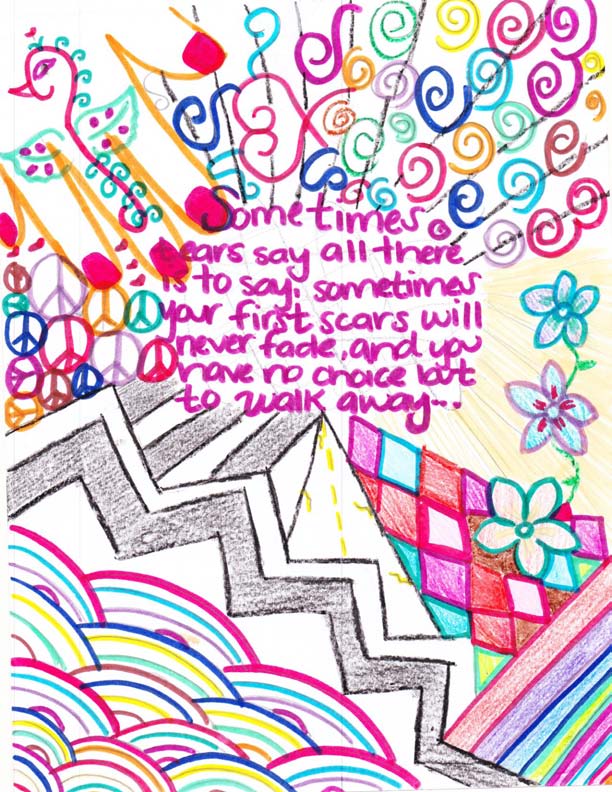 Sometimes
tears say all there
is to say, sometimes
your first scars will
never fade, and you
have no choice but
to walk away...